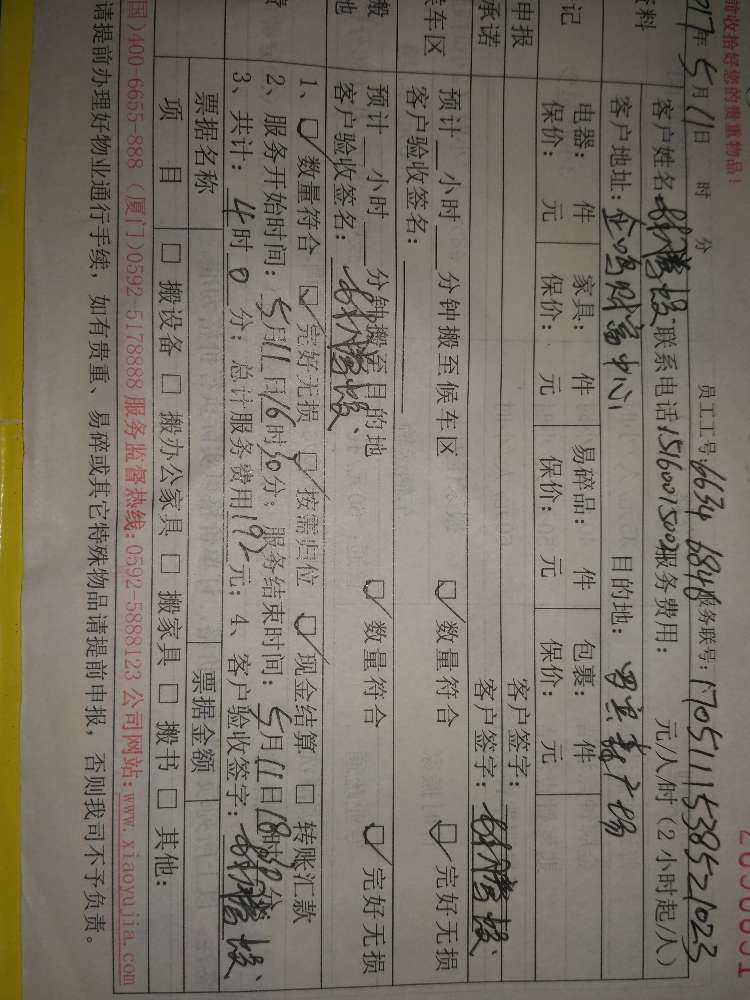 前收拾好您的贵重物品!
017年5月11日 时 分 员工工号:6634 6848服务联号:1705111538521023
资料
客户姓名 联系电话15160015002服务费用: 元/人/时(2小时起/人)
客户地址: 财富中心 目的地: 罗宾森广场
记
电器: 件 家具: 件 易碎品: 件 包裹: 件
保价: 元 保价: 元 保价: 元 保价: 元
申报 客户签字:
承诺 客户签字:
候车区
预计__小时__分钟搬至候车区 ☑数量符合 ☑完好无损
客户验收签名:
搬
地
预计__小时__分钟搬至目的地 ☑数量符合 ☑完好无损
客户验收签名:
1、☑数量符合 ☑完好无损 ☑按需归位 ☑现金结算 □转账汇款
2、服务开始时间:5月11日16时30分;服务结束时间:5月11日18时30分
3、共计:4时0分;总计服务费用192元;4、客户验收签字:
票据名称 票据金额
项 目 □搬设备 □搬办公家具 □搬家具 □搬书 □其他:
国)400-6655-888 (厦门)0592-5178888 服务监督热线:0592-5888123 公司网站:www.xiaoyujia.com
请提前办理好物业通行手续,如有贵重、易碎或其它特殊物品请提前申报,否则我司不予负责。